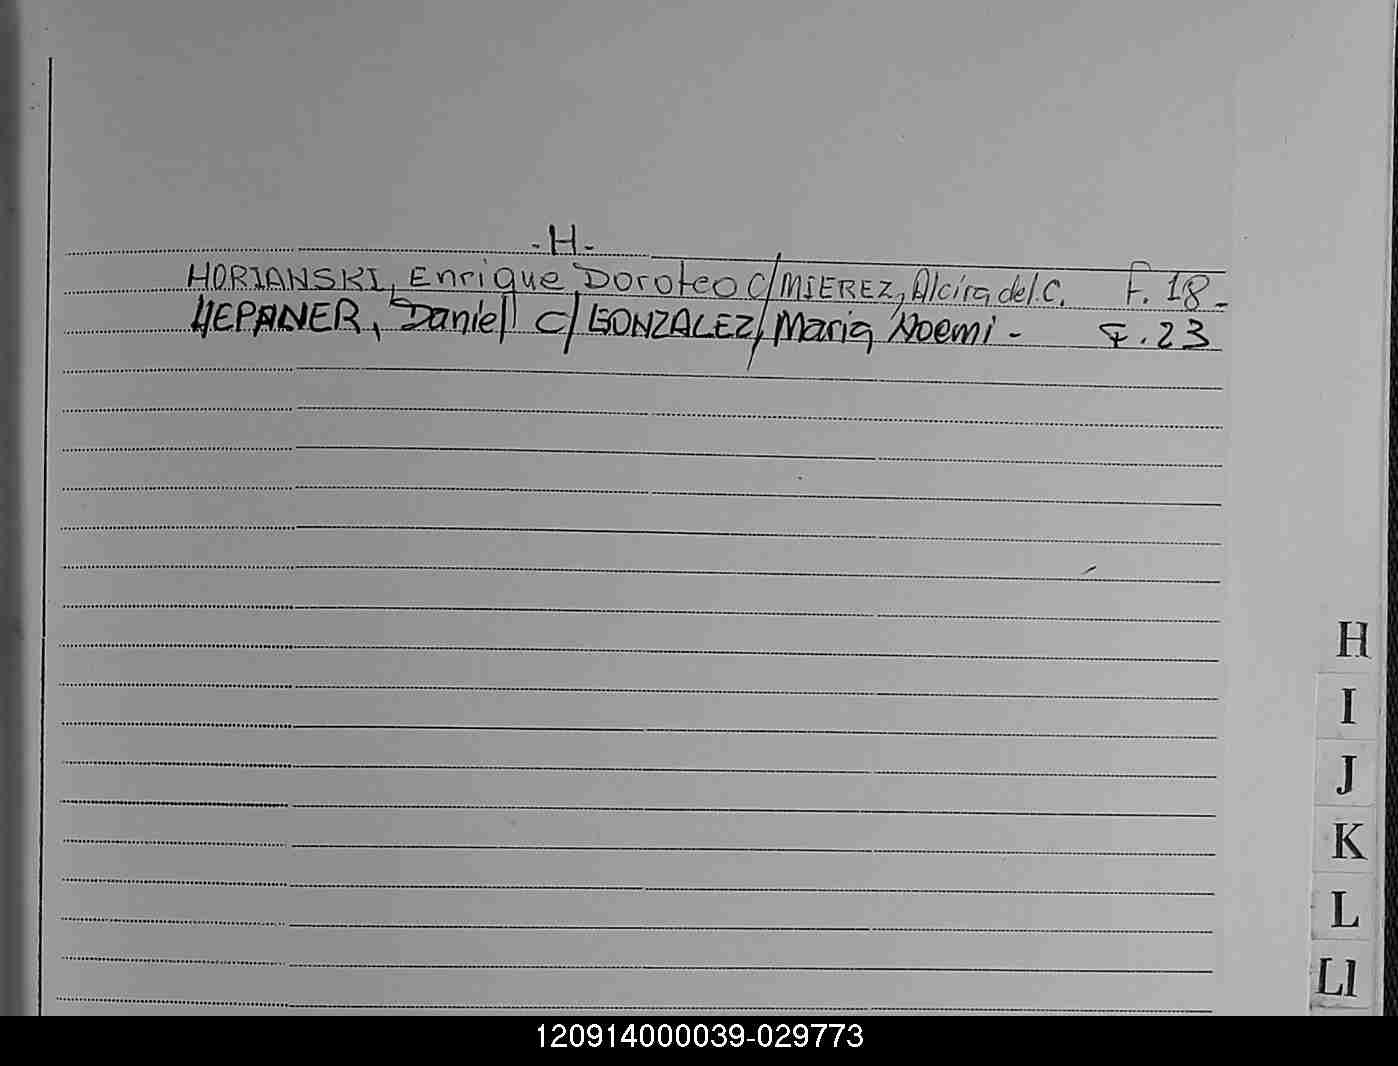 -H-
HORIANSKI, Enrique Doroteo C/ MIEREZ, Alcira del C. F. 18-
HEPANER, Daniel C/ GONZALEZ, Maria Noemi - F. 23
H
I
J
K
L
Ll
120914000039-029773